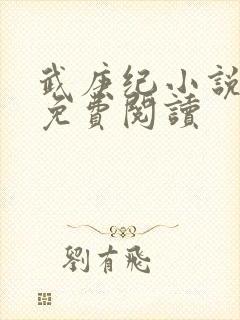 武庚纪小說
免費閱讀
劉有飛